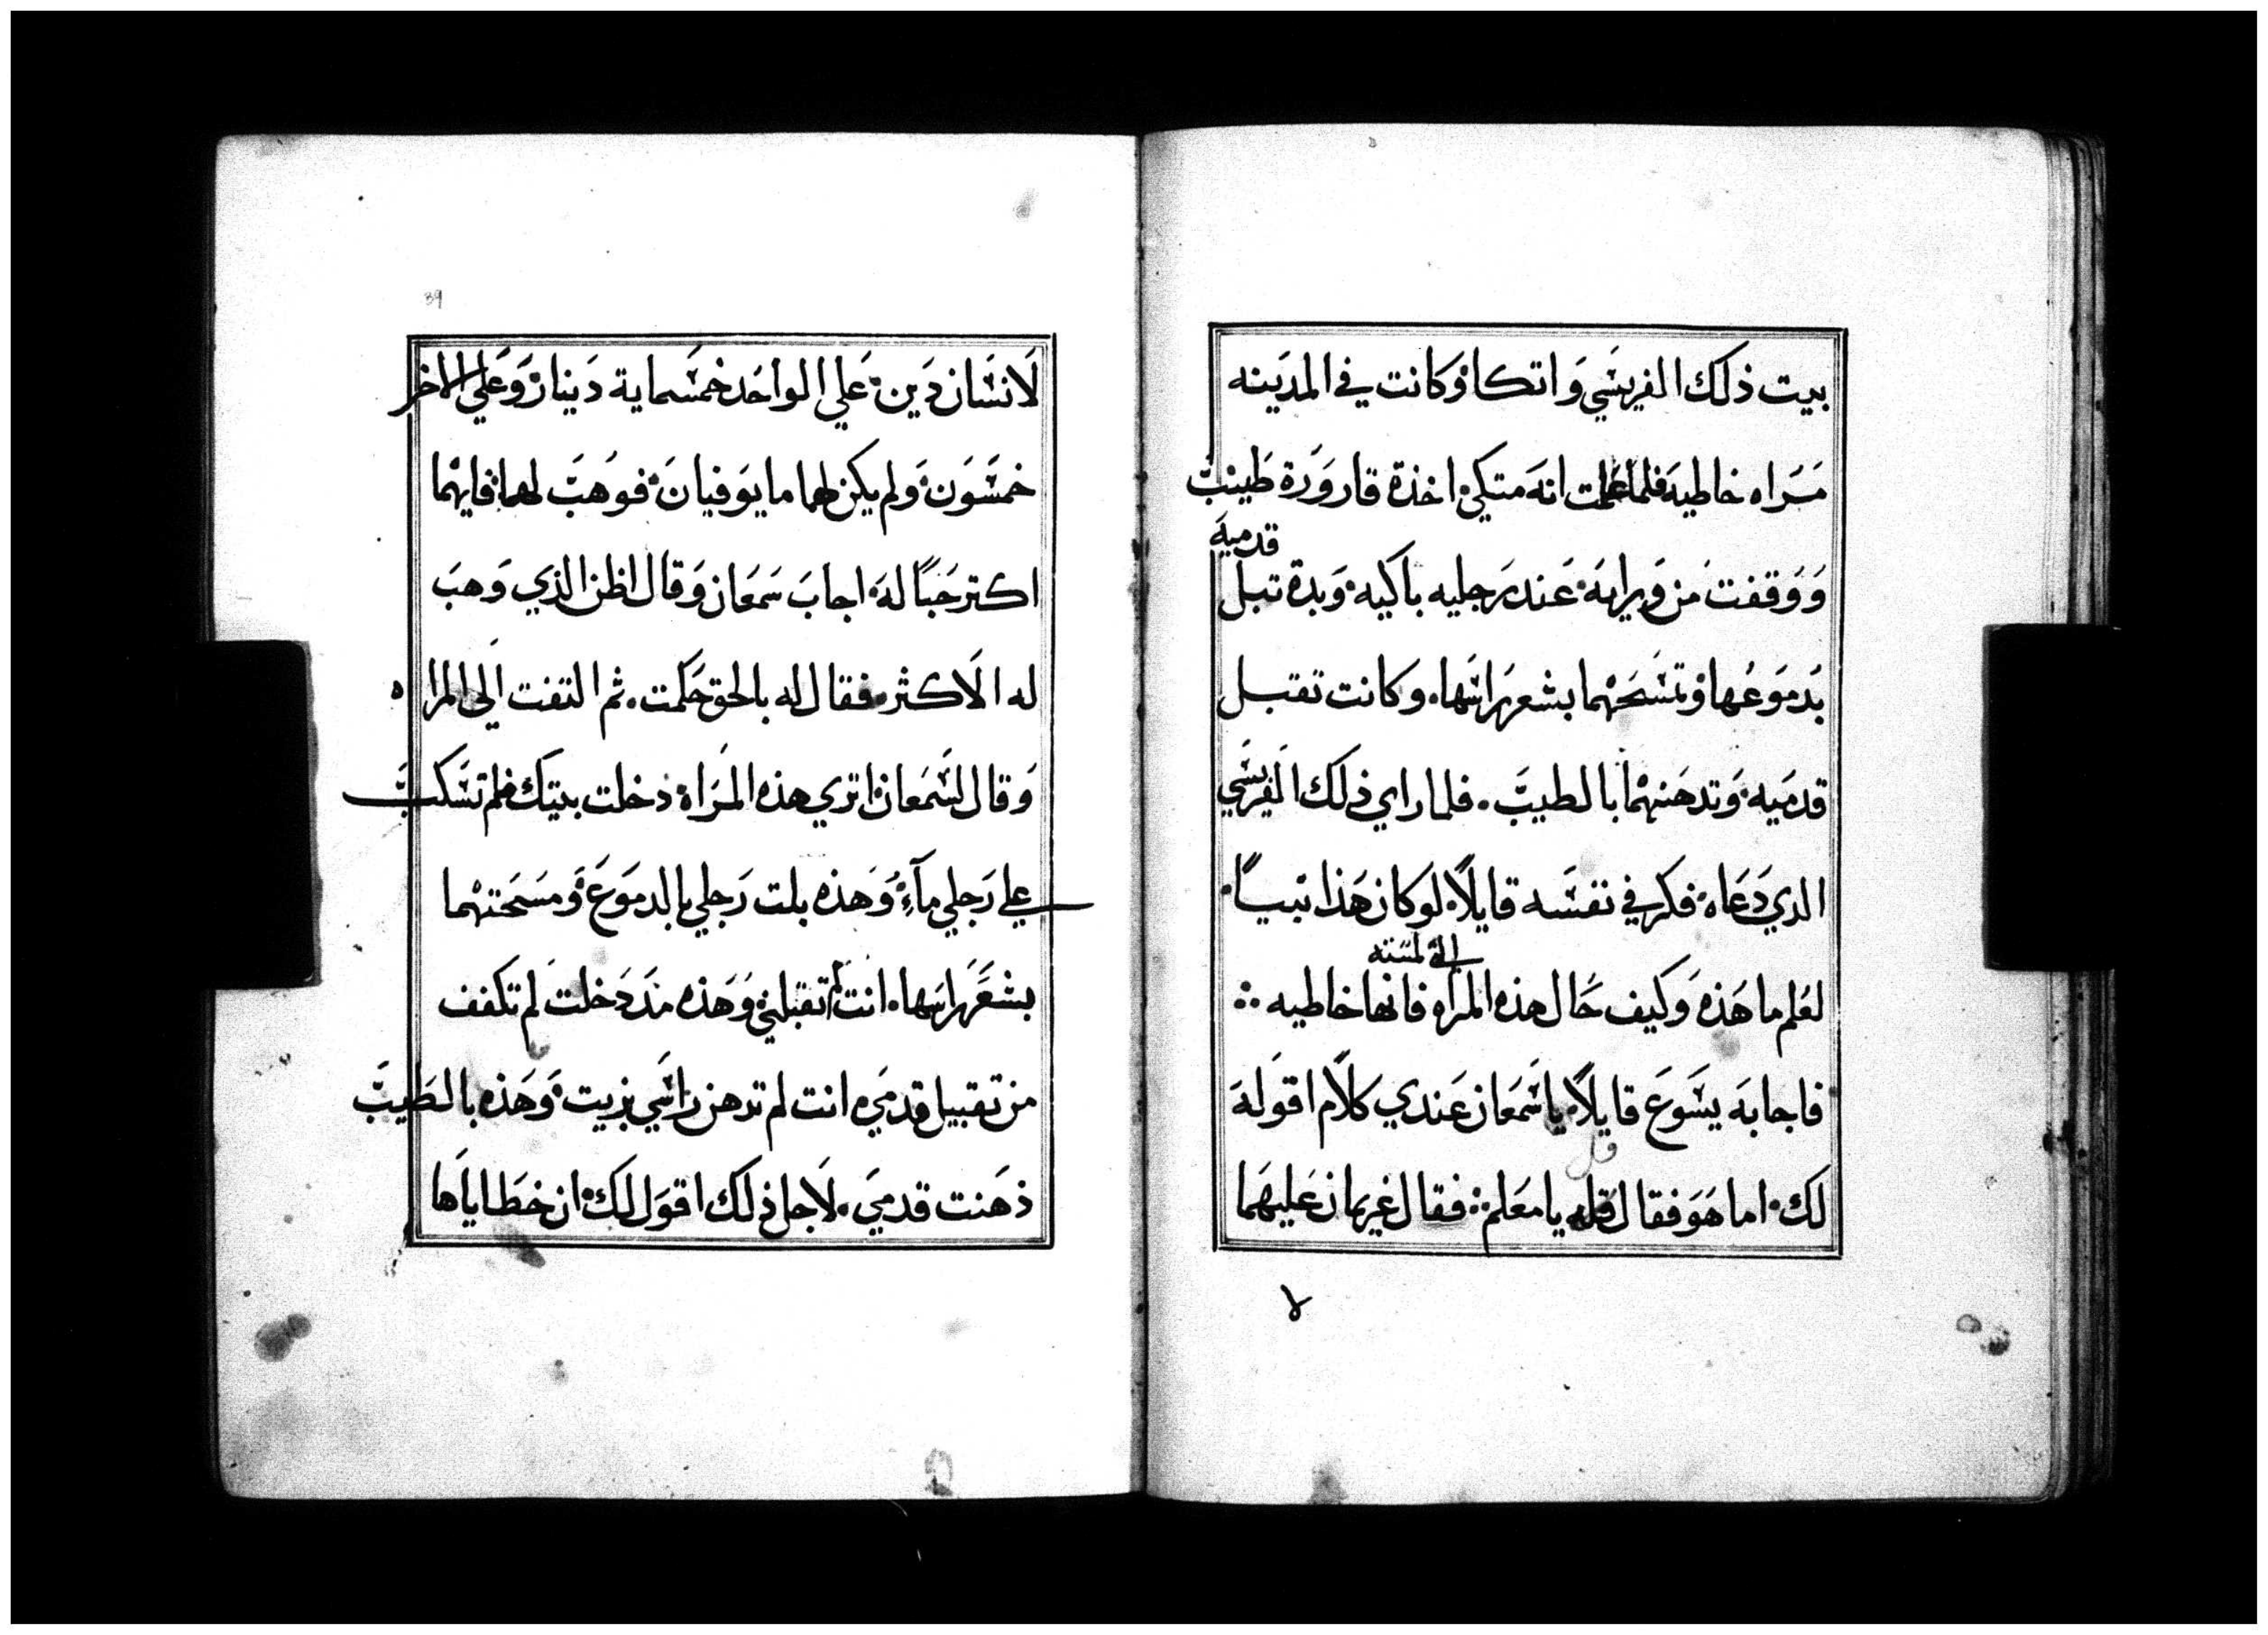 بيت ذلك الفريسَي وَاتكا وكانت في المدَينه
مَرَاه خاطيه فلما علمت انهَ متكي اخذة قارورَة طَيبْ
قدميهَ
وَوَقفت مَن وَرايهَ عَند رَجليه باكيه وَبدة تبل
بُدموَعُها وَتمسَحَهْما بشعرَراسَها. وكانت تقبل
قدمَيه وَتدهَنهْما بالطيبَ. فلما راي ذلك الفريسَي
الدي دَعَاه فكر في نفسَه قايلاً لوَكان هَذا نبياً
التي لمسَته
لعَلم ما هَذه وَكيف حَال هذه المرَاه فانها خاطيه
فاجابهَ يسَوعَ قايلاً يا سَمَعَان عَندي كلاَم اقوَلهَ
لك اما هَوَ فقال قله يا معَلم فقال غريمان عَليهَما
لا
39
لاَنسَان دَين عَلي الواحَد خمسَماية دَينار وَعَلي الاخر
خمسَوَن وَلم يكن لهما ما يوَفيانَ فوَهبَ لهما فايهْما
اكتر حَبًا لهَ اجابَ سَمعَان وَقال اظن الذي وَهبَ
له الاَكثر فقال له بالحق حَكمت. ثم التفت اَلي المراه
وَقال لسَمعَان اتري هذه المرَاة دخلت بيتك فلم تسَكبَ
علي رَجلي مآءٍ وَهَذه بلت رَجلي بالدموَعَ وَمسَحَتهْما
بشعَرَراسَها. انت لم تقبلني وَهَذه مَندَ دَخلت لَم تكفف
من تقبيل قدمَي انت لم تدهن راسَي بزيت وَهَذه بالطَيبَ
ذهَنت قدميَ. لاَجل ذلك اقوَل لك ان خطَاياَها